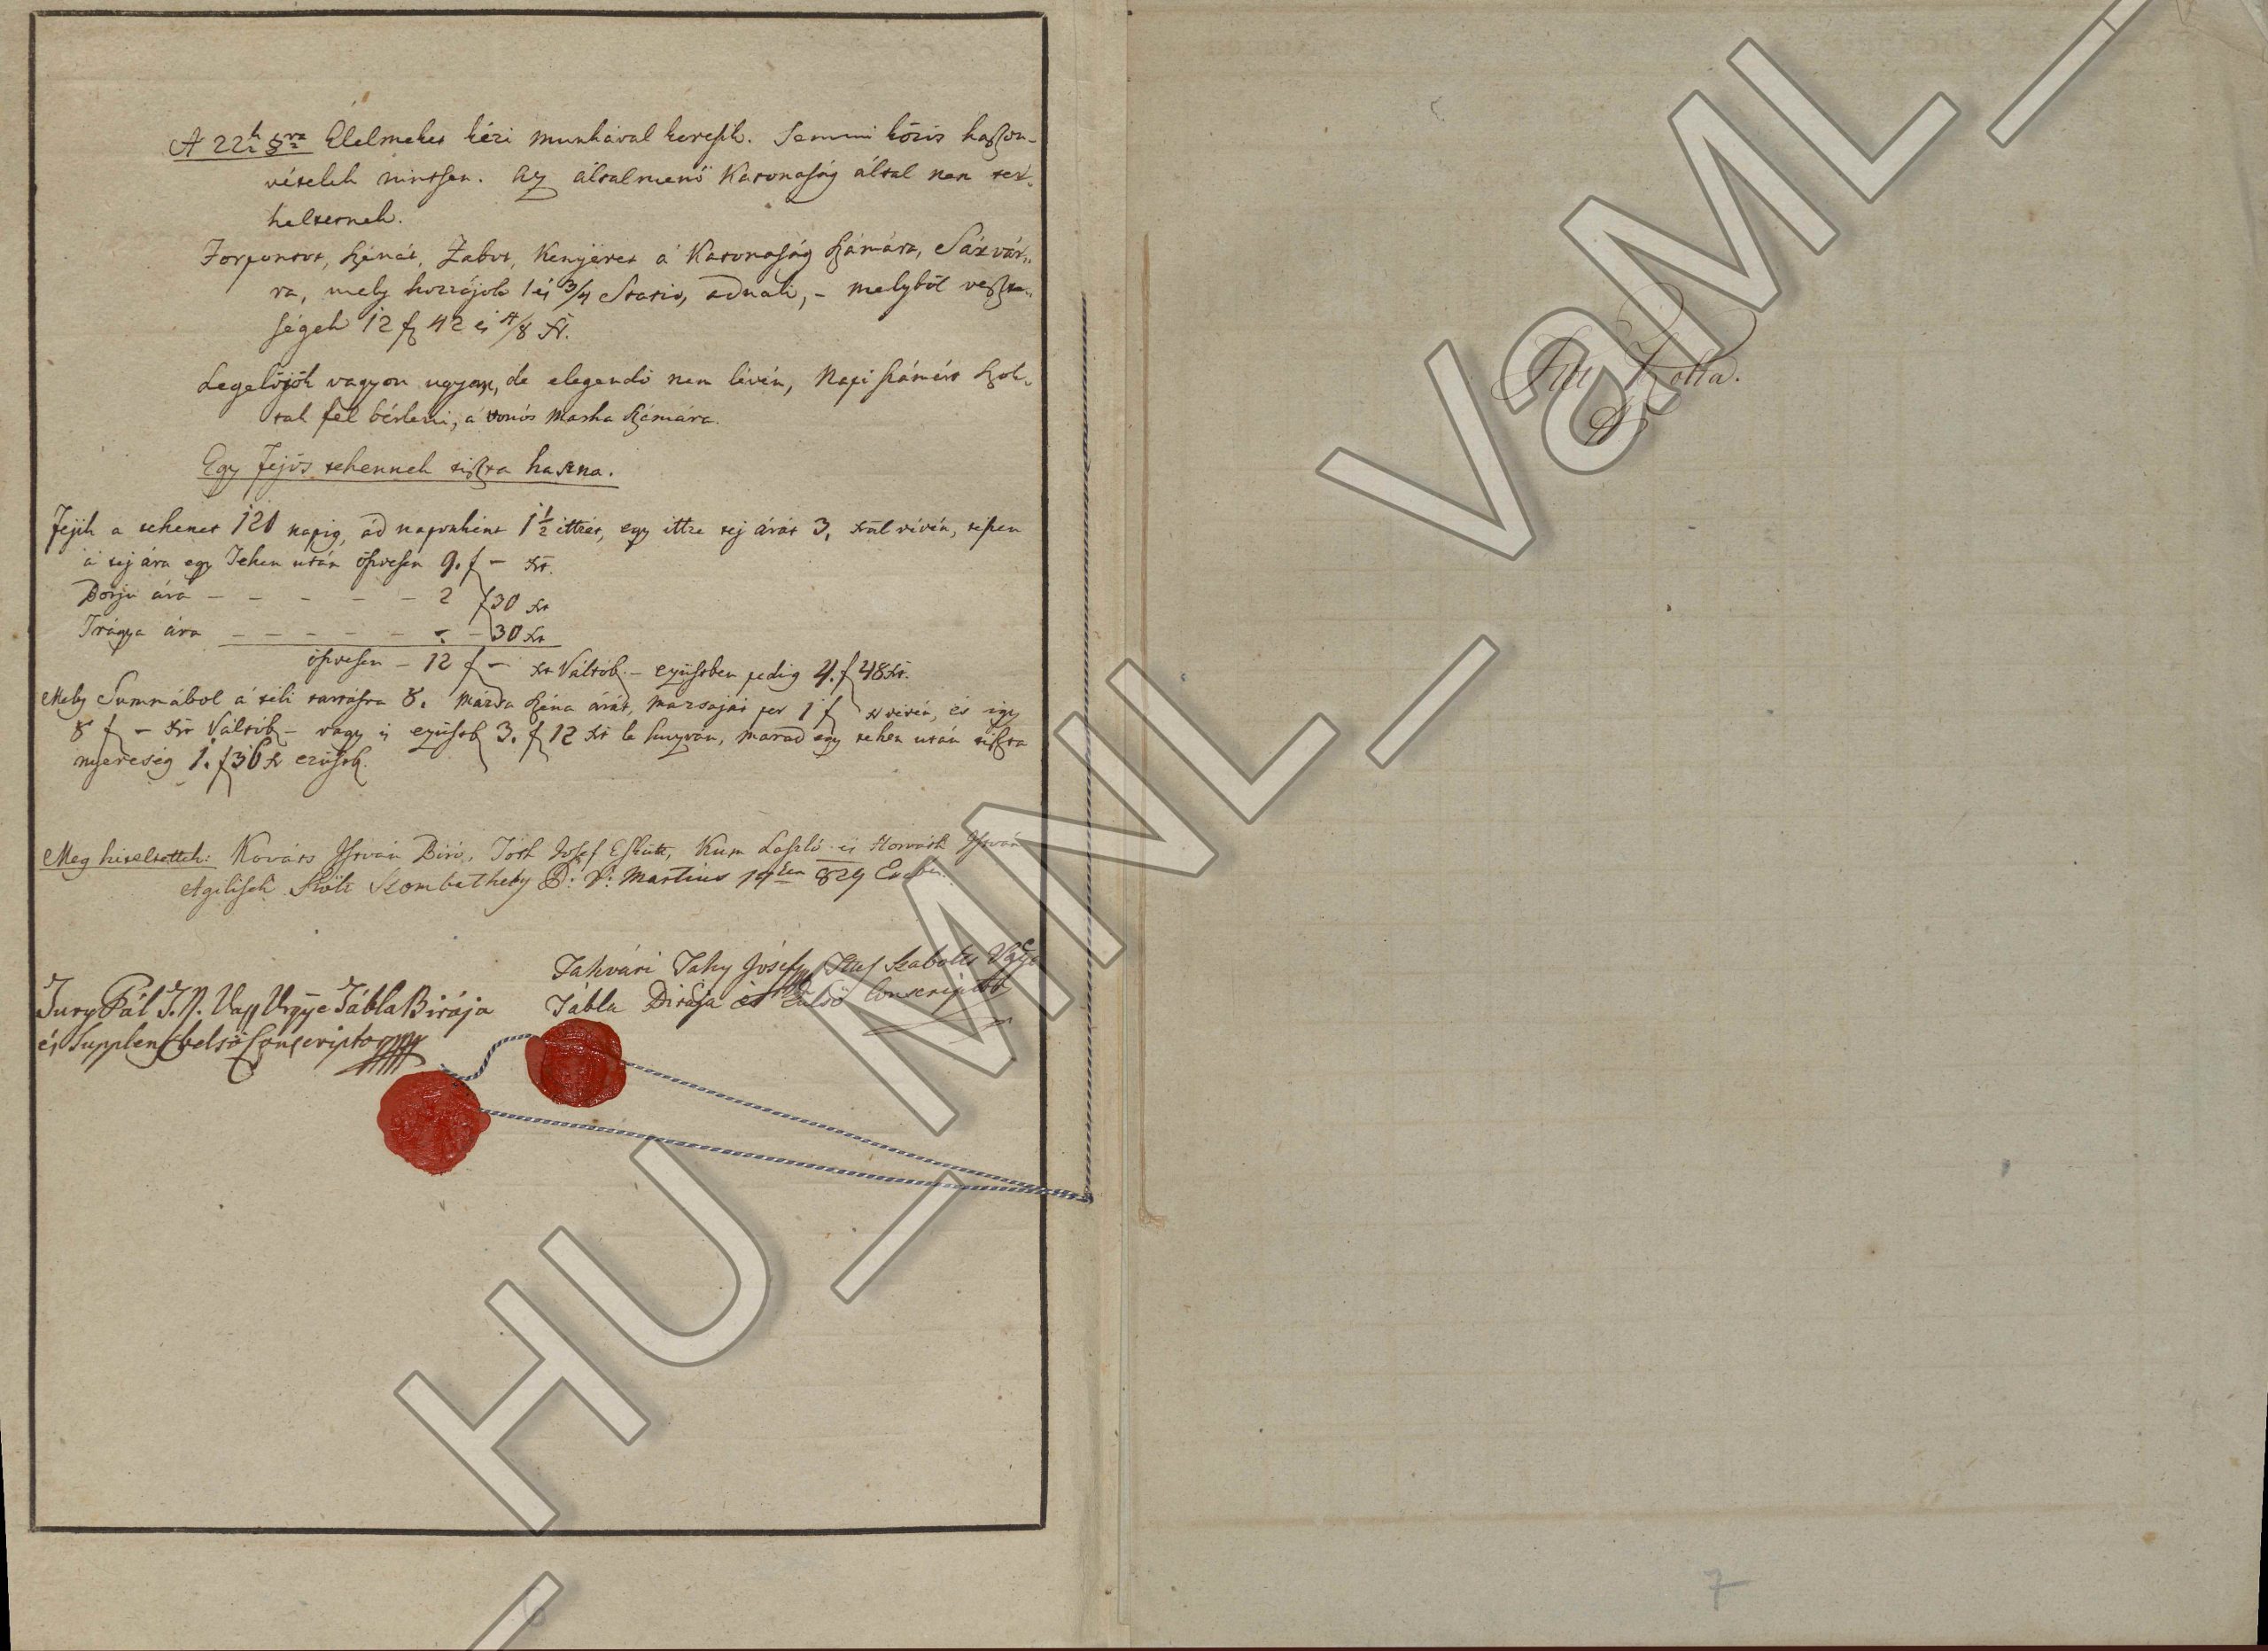 A 22k §ra Élelmeket kézi munkával keresik. Semmi közös haszon-
vételek nintsen. Az általmenő Katonaság által nem ter-
heltetnek.
Forspontot, Szénát, Zabot, Kenyéret á Katonaság számára, Sárvár-
ra, mely hozzájok 1 és 3/4 Statio, adnak, – melyből veszte-
ségek 12 f 42 és 4/8 Xr.
Legelőjök vagyon ugyan, de elegendő nem lévén, Napi számért szok-
tak fel bérleni, a vonós Marha számára.
Egy fejős tehennek tiszta haszna.
Fejik a tehenet 120 napig, ád naponként 1 1/2 ittzét, egy ittze tej árát 3, vévén, tészen
á tej ára egy Tehen után öszvesen 9. f – Xr.
Borju ára – – – – – – 2 f 30 Xr
Trágya ára – – – – – – – 30 Xr
öszvesen – 12 f – Xr Váltób. – ezüstben pedig 4. f 48 Xr.
Mely Summábol á téli tartásra 8. Mázsa széna árát, Mázsáját per 1 f Xr vévén, és igy
8 f – Xr Váltób – vagy is ezüstb 3. f 12 Xr le húzván, marad egy tehen után tiszta
nyereség 1. f 36 Xr ezüstb.
Meg hiteltettek: Kováts István Biró, Tóth Josef Eskütt, Kum László és Horváth István
Szombathely D: V: Martius 19én 829 Eszben.
Tahvári Tahy Jósef Ttes Szabolts Vgye
Tábla Birája és Külső Conscriptor
Jury Pál T. N. Vass Vrgye Tábla Birája
és Supplens belső Conscriptor mp
7
_HU_MNL_VaML_